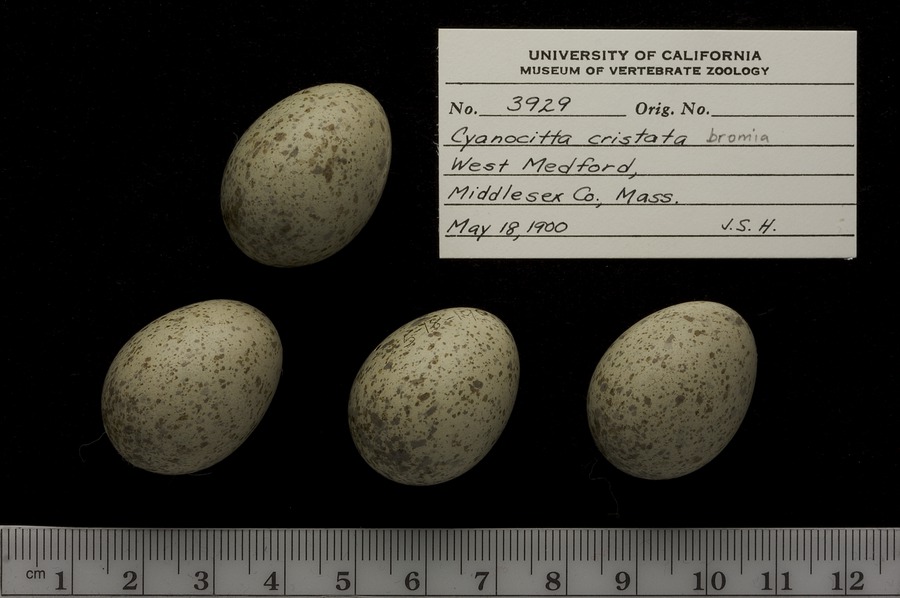 UNIVERSITY OF CALIFORNIA
MUSEUM OF VERTEBRATE ZOOLOGY
No. 3929 Orig. No.
Cyanocitta cristata bromia
West Medford,
Middlesex Co., Mass.
May 18, 1900 J.S.H.
cm 1 2 3 4 5 6 7 8 9 10 11 12